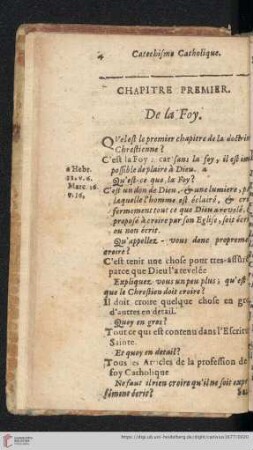 4 Catechisme Catholique.
CHAPITRE PREMIER.
De la Foy.
Quel est le premier chapitre de la doctrin
Chrestienne?
C'est la Foy; car sans la foy, il est im
possible de plaire à Dieu. a
a Hebr.
11. v. 6.
Marc. 16
v. 16.
Qu'est-ce que la Foy?
C'est un don de Dieu, & une lumiere, p
laquelle l'homme est éclairé, & cr
fermement tout ce que Dieu a revelé
proposé à croire par son Eglise, soit écri
ou non écrit.
Qu'appellez-vous donc propreme
croire?
C'est tenir une chose pour tres-assu
parce que Dieu l'a revelée
Expliquez vous un peu plus; qu'est
que le Chrestien doit croire?
Il doit croire quelque chose en gro
d'autres en détail.
Quoy en gros?
Tout ce qui est contenu dans l'Escritu
Sainte.
Et quoy en détail?
Tous les Articles de la profession de
foy Catholique
Ne faut il rien croire qu'il ne soit expr
sément écrit?